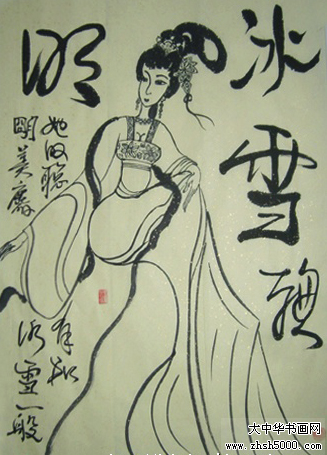 冰雪聪
明
她的聪
明美麗
有如
冰雪一般
大中华书画网
www.zhsh5000.com